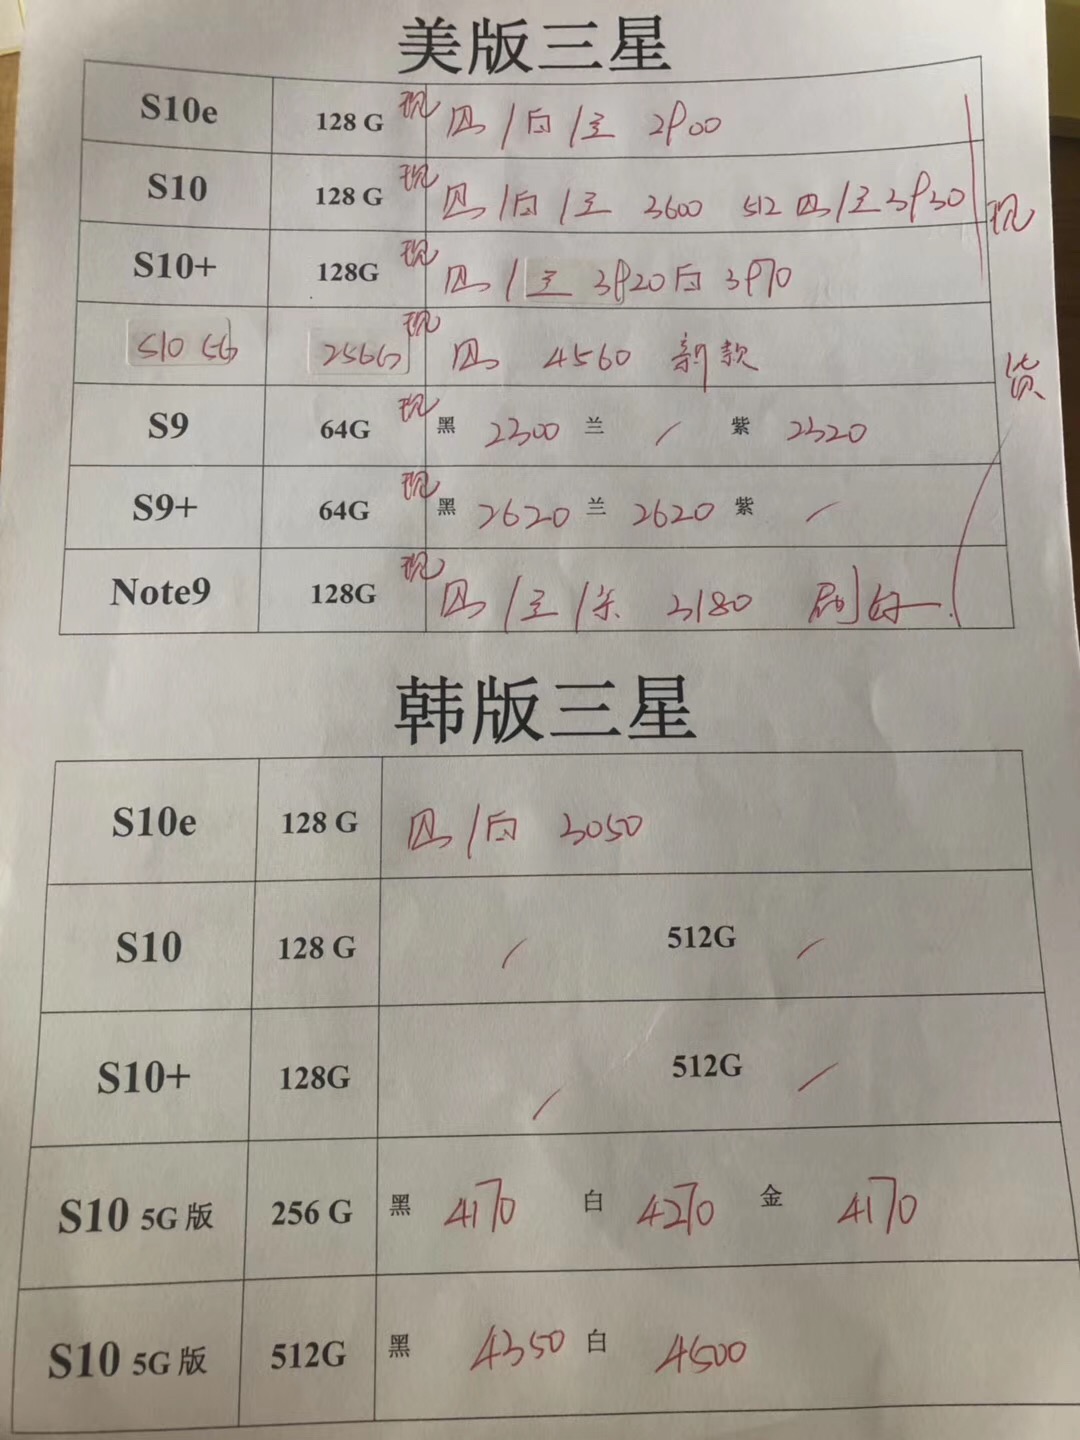 美版三星
S10e 128 G 现 黑/白/兰 2900
S10 128 G 现 黑/白/兰 3600 512 黑/兰3930
S10+ 128G 现 黑/兰 3920白 3970
S10 5G 256G 现 黑 4560 新款
S9 64G 现 黑 2300 兰 / 紫 2320
S9+ 64G 现 黑 2620 兰 2620 紫 /
Note9 128G 现 黑/兰/紫 3180 刷好
现货
韩版三星
S10e 128 G 黑/白 3050
S10 128 G / 512G /
S10+ 128G / 512G /
S10 5G 版 256 G 黑 4170 白 4270 金 4170
S10 5G 版 512G 黑 4350 白 4500